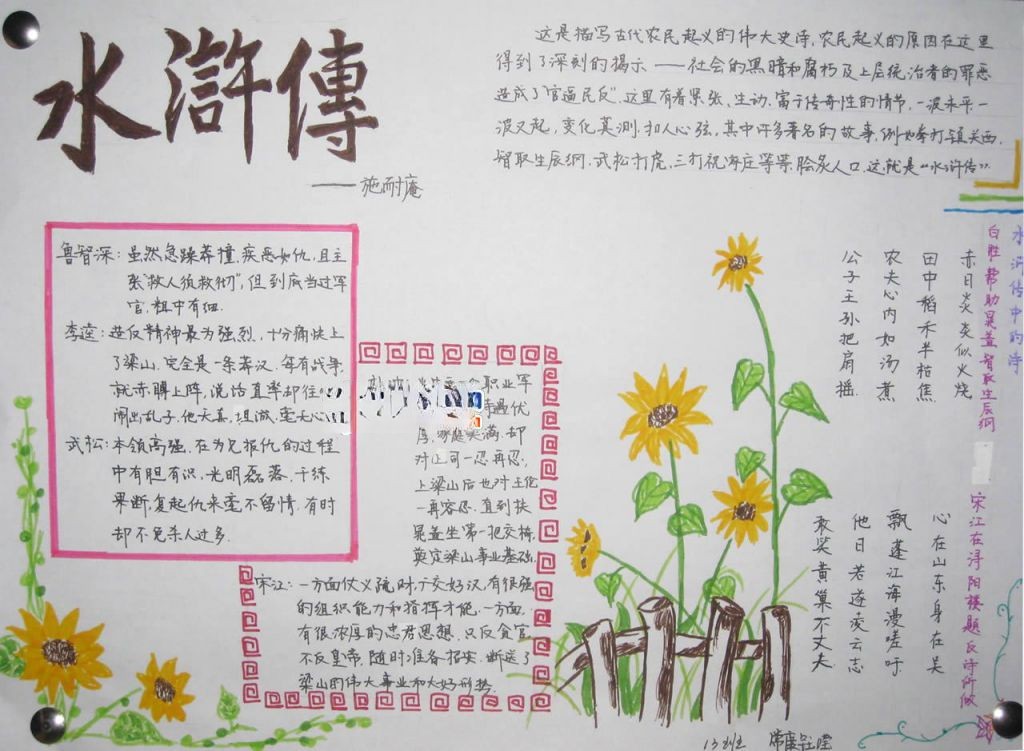 水滸傳
——施耐庵
这是描写古代农民起义的伟大史诗,农民起义的原因在这里
得到了深刻的揭示——社会的黑暗和腐朽及上层统治者的罪恶
造成了"官逼民反".这里有着紧张、生动、富于传奇性的情节,一波未平一
波又起,变化莫测,扣人心弦,其中许多著名的故事,例如拳打镇关西,
智取生辰纲,武松打虎,三打祝家庄等等,脍炙人口.这就是"水浒传".
鲁智深:虽然急躁莽撞,疾恶如仇,且主
张"救人须救彻",但到底当过军
官,粗中有细.
李逵:造反精神最为强烈,十分痛快上
了梁山,完全是一条莽汉,每有战事,
就赤膊上阵,说话直率却往
闹出乱子.他天真,粗鲁,毫无心
武松:本领高强,在为兄报仇的过程
中有胆有识,光明磊落,干练
果断,复起仇来毫不留情,有时
却不免杀人过多.
职业军
待遇优
厚,家庭美满,却
对上司一忍再忍,
上梁山后也对王伦
一再容忍,直到扶
晁盖坐第一把交椅,
奠定梁山事业基础.
宋江:一方面仗义疏财,广交好汉,有很强
的组织能力和指挥才能,一方面,
有很浓厚的忠君思想,只反贪官,
不反皇帝,随时准备招安,断送了
梁山的伟大事业和大好形势.
水浒传中的诗
白胜帮助晁盖智取生辰纲
赤日炎炎似火烧
田中稻禾半枯焦
农夫心内如汤煮
公子王孙把扇摇
宋江在浔阳楼题反诗所做
心在山东身在吴
飘蓬江海漫嗟吁
他日若遂凌云志
敢笑黄巢不丈夫
13班